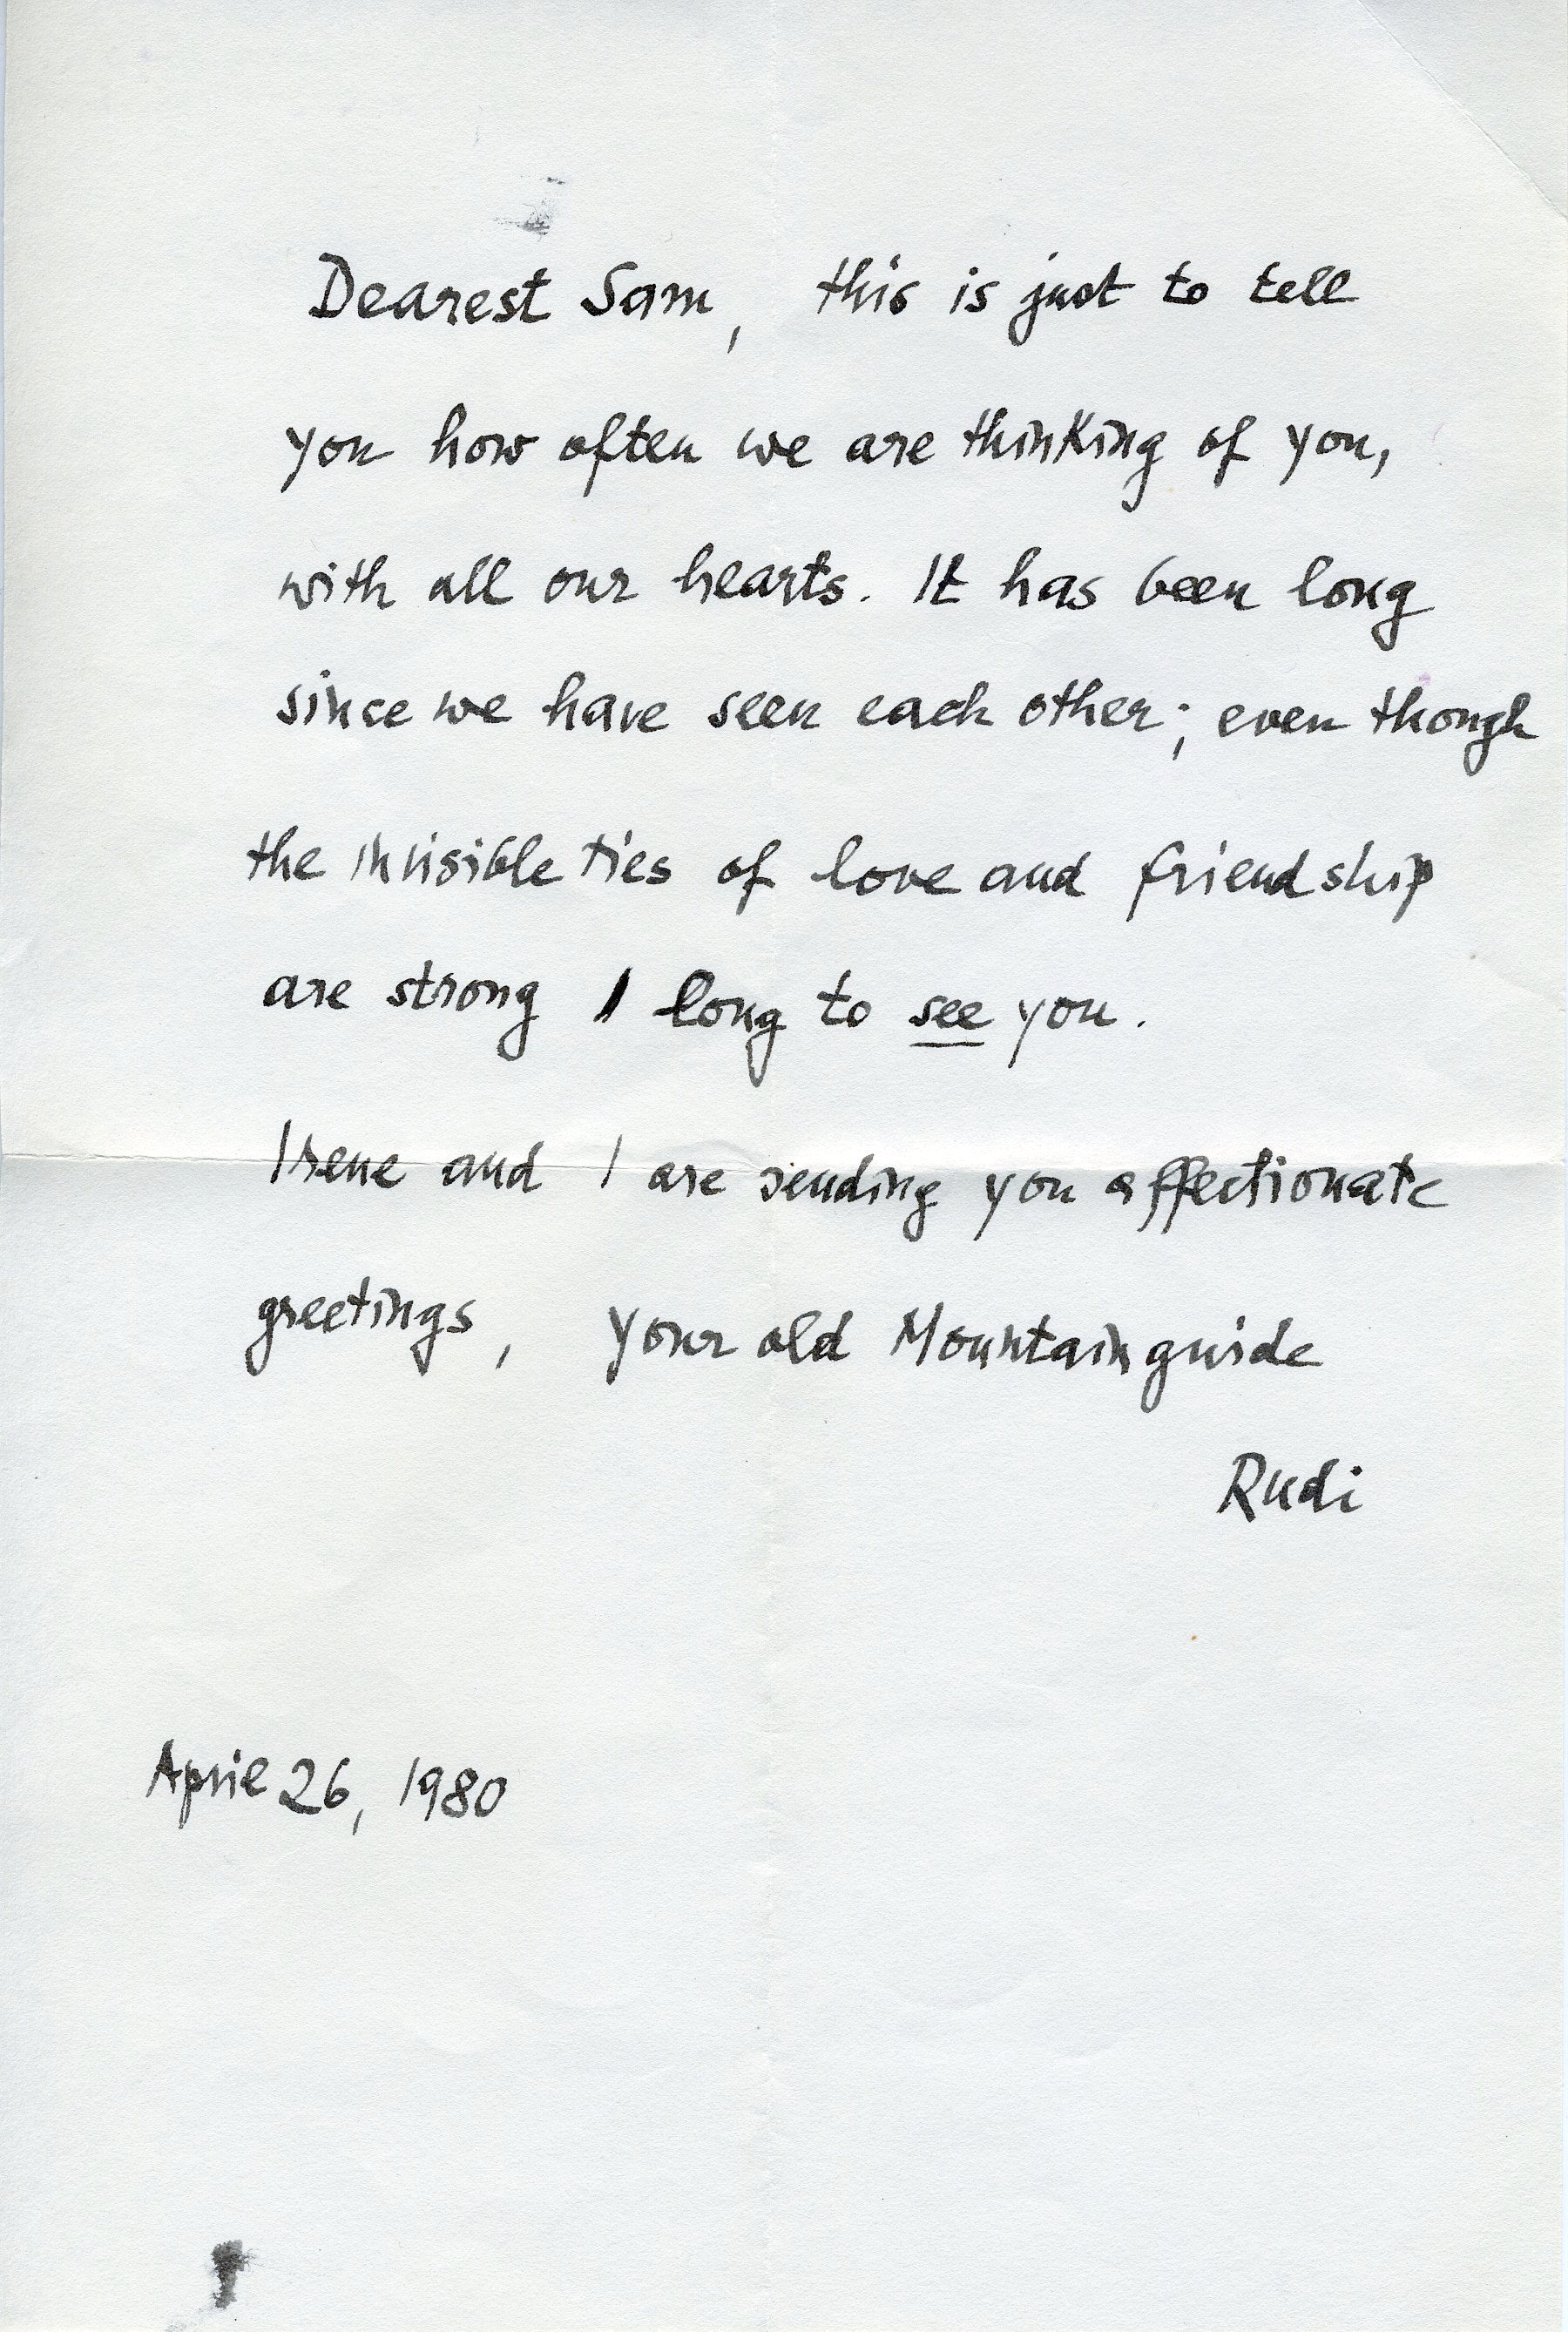 Dearest Sam, this is just to tell
you how often we are thinking of you,
with all our hearts. It has been long
since we have seen each other; even though
the invisible ties of love and friendship
are strong I long to see you.
Irene and I are sending you affectionate
greetings, your old Mountainguide
Rudi
April 26, 1980